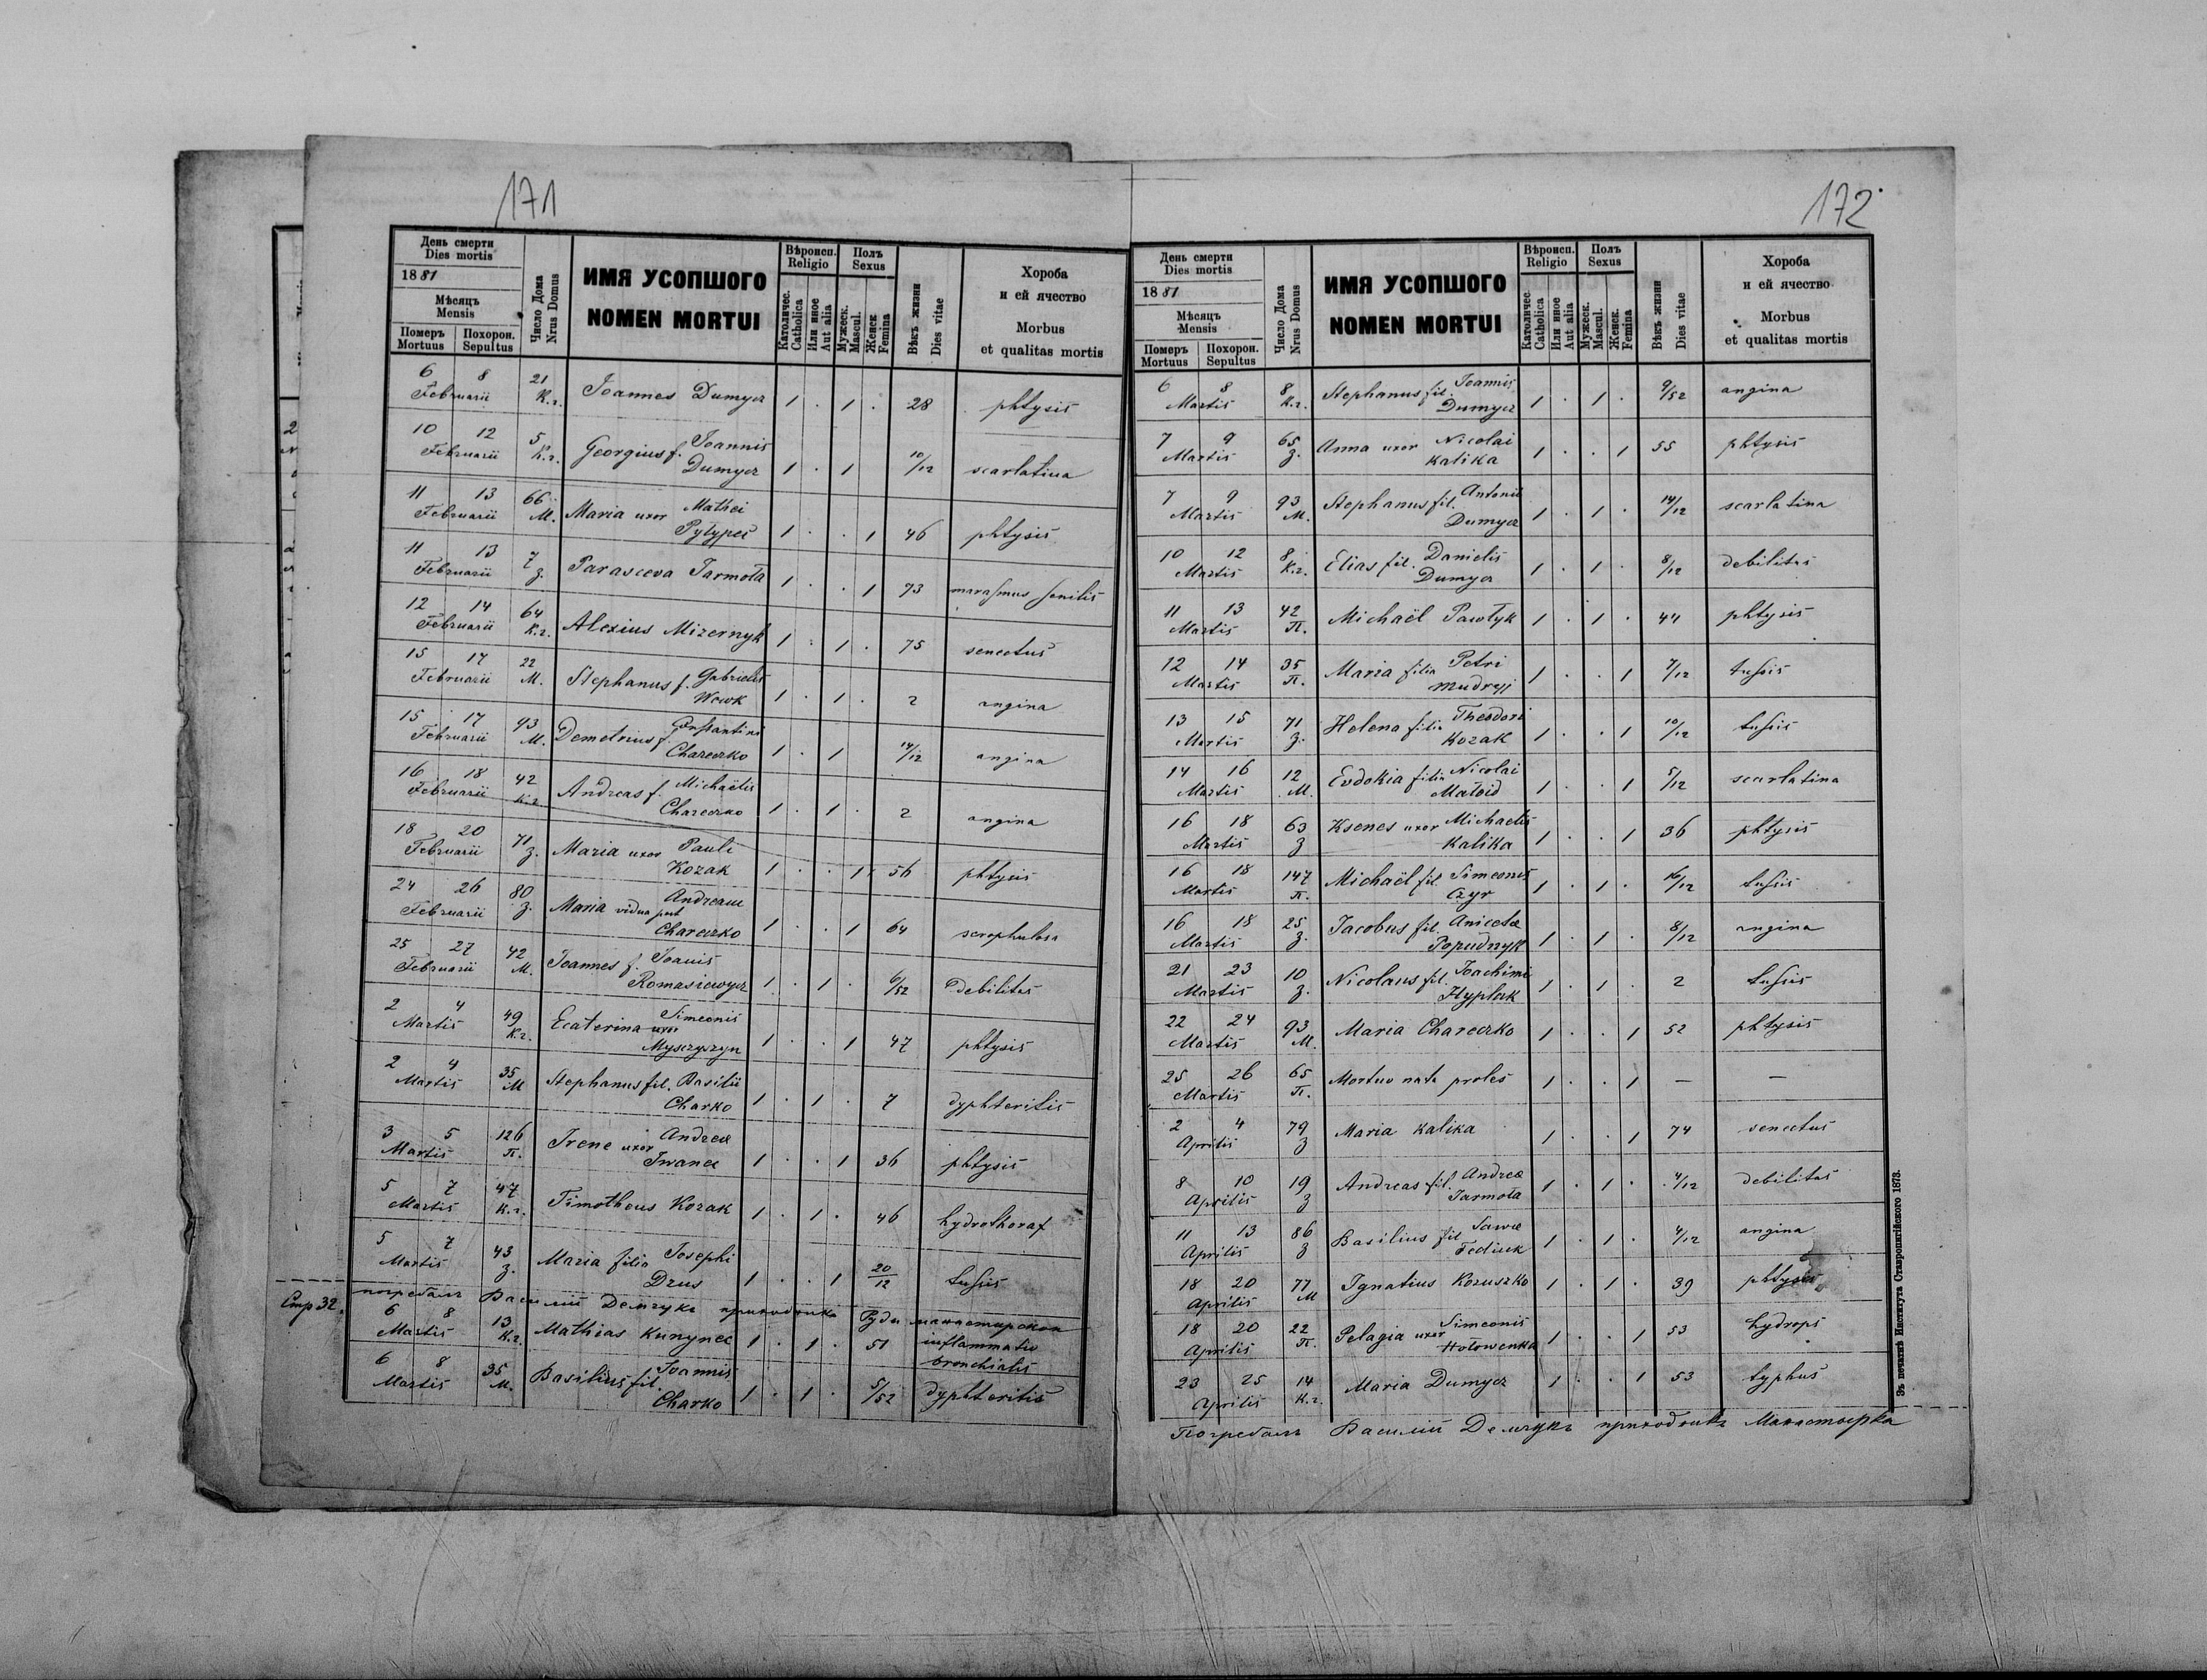 171
День смерти
Dies mortis
1881
Мѣсяцъ
Mensis
Померъ Похорон.
Mortuus Sepultus
Число Дома
Nrus Domus
ИМЯ УСОПШОГО
NOMEN MORTUI
Вѣроисп.
Religio
Католичес.
Catholica
Или иное
Aut alia
Полъ
Sexus
Мужеск.
Mascul.
Женск
Femina
Вѣкъ жизни
Dies vitae
Хороба
и ей ячество
Morbus
et qualitas mortis
6 8 Februarii 21 К.г. Joannes Dumycz 1 . 1 . 28 phtysis
10 12 Februarii 5 К.г. Georgius f. Joannis
Dumycz 1 . 1 10/12 scarlatina
11 13 Februarii 66 М. Maria uxor Mathei
Pytypeć 1 . . 1 46 phtysis
11 13 Februarii 7 З. Parasceva Jarmoła 1 . . 1 73 marasmus senilis
12 14 Februarii 64 К.г. Alexius Mizernyk 1 . 1 . 75 senectus
15 17 Februarii 22 М. Stephanus f. Gabrielis
Wowk 1 . 1 . 2 angina
15 17 Februarii 93 М. Demetrius f. Constantini
Chareczko 1 . 1 14/12 angina
16 18 Februarii 42 К.г. Andreas f. Michaëlis
Chareczko 1 . 1 . 2 angina
18 20 Februarii 71 З. Maria uxor Pauli
Kozak 1 . . 1 56 phtysis
24 26 Februarii 80 З. Maria vidua post Andream
Chareczko 1 . . 1 64 scrophulosa
25 27 Februarii 42 М. Joannes f. Joanis
Romasiewycz 1 . 1 . 6/52 Debilitas
2 4 Martis 49 К.г. Ecaterina uxor Simeonis
Myszczyszyn 1 . . 1 47 phtysis
2 4 Martis 35 М Stephanus fil. Basilii
Charko 1 . 1 . 7 dyphteritis
3 5 Martis 126 П. Irene uxor Andreæ
Iwanec 1 . . 1 36 phtysis
5 7 Martis 47 К.г. Timotheus Kozak 1 . 1 . 46 hydrothorax
5 7 Martis 43 З. Maria filia Josephi
Drus 1 . . 1 20/12 tussis
Стр 32. погребалъ Василій Демчукъ приходникъ Руды манастирской
6 8 Martis 13 К.г. Mathias Kunynec 1 . 1 . 51 inflammatio
bronchialis
6 8 Martis 35 М. Basilius fil. Joannis
Charko 1 . 1 . 5/52 dyphteritis
172
День смерти
Dies mortis
1881
Мѣсяцъ
Mensis
Померъ Похорон.
Mortuus Sepultus
Число Дома
Nrus Domus
ИМЯ УСОПШОГО
NOMEN MORTUI
Вѣроисп.
Religio
Католичес.
Catholica
Или иное
Aut alia
Полъ
Sexus
Мужеск.
Mascul.
Женск.
Femina
Вѣкъ жизни
Dies vitae
Хороба
и ей ячество
Morbus
et qualitas mortis
6 8 Martis 8 К.г. Stephanus fil. Joannis
Dumycz 1 . 1 . 9/52 angina
7 9 Martis 65 З. Anna uxor Nicolai
Kalika 1 . . 1 55 phtysis
7 9 Martis 93 М. Stephanus fil. Antonii
Dumycz 1 . 1 . 14/12 scarlatina
10 12 Martis 8 К.г. Elias fil. Danielis
Dumycz 1 . 1 . 8/12 debilitas
11 13 Martis 42 П. Michaël Pawłyk 1 . 1 . 44 phtysis
12 14 Martis 35 П. Maria filia Petri
Mudryj 1 . . 1 7/12 tussis
13 15 Martis 71 З. Helena filia Theodori
Kozak 1 . . 1 10/12 tussis
14 16 Martis 12 М. Evdokia filia Nicolai
Matoid 1 . . 1 5/12 scarlatina
16 18 Martis 63 З Ksenes uxor Michaelis
Kalika 1 . . 1 36 phtysis
16 18 Martis 147 П. Michaël fil. Simeonis
Czyr 1 . 1 . 16/12 tussis
16 18 Martis 25 З. Jacobus fil. Anicetæ
Popudnyk 1 . 1 . 8/12 angina
21 23 Martis 10 З. Nicolaus fil. Joachimi
Hyplak 1 . 1 . 2 tussis
22 24 Martis 93 М. Maria Chareczko 1 . . 1 52 phtysis
25 26 Martis 65 П. Mortuo nata proles 1 . . 1 — —
2 4 Aprilis 79 З Maria Kalika 1 . . 1 74 senectus
8 10 Aprilis 19 З Andreas fil. Andreæ
Jarmoła 1 . 1 . 4/12 debilitas
11 13 Aprilis 86 З Basilius fil Sawæ
Fediuk 1 . 1 . 4/12 angina
18 20 Aprilis 77 М Ignatius Kozuszko 1 . 1 . 39 phtysis
18 20 Aprilis 22 П. Pelagia uxor Simeonis
Hołowenka 1 . . 1 53 hydrops
23 25 Aprilis 14 К.г. Maria Dumycz 1 . . 1 53 typhus
Погребалъ Василій Демчукъ приходникъ Манастырка
Зъ печатнѣ Института Ставропигійского 1873.